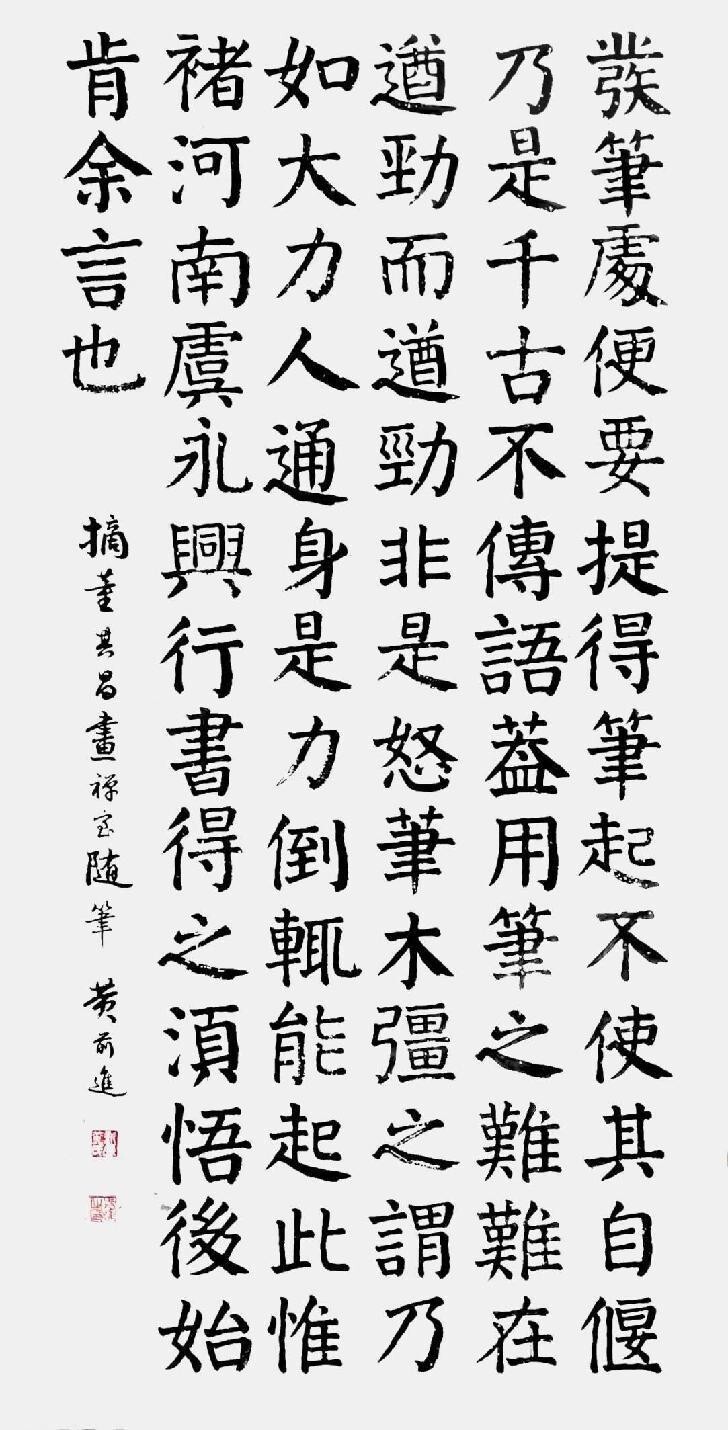 發筆處便要提得筆起不使其自偃
乃是千古不傳語蓋用筆之難難在
遒勁而遒勁非是怒筆木彊之謂乃
如大力人通身是力倒輒能起此惟
褚河南虞永興行書得之須悟後始
肯余言也
摘董其昌畫禪室隨筆 黃前進